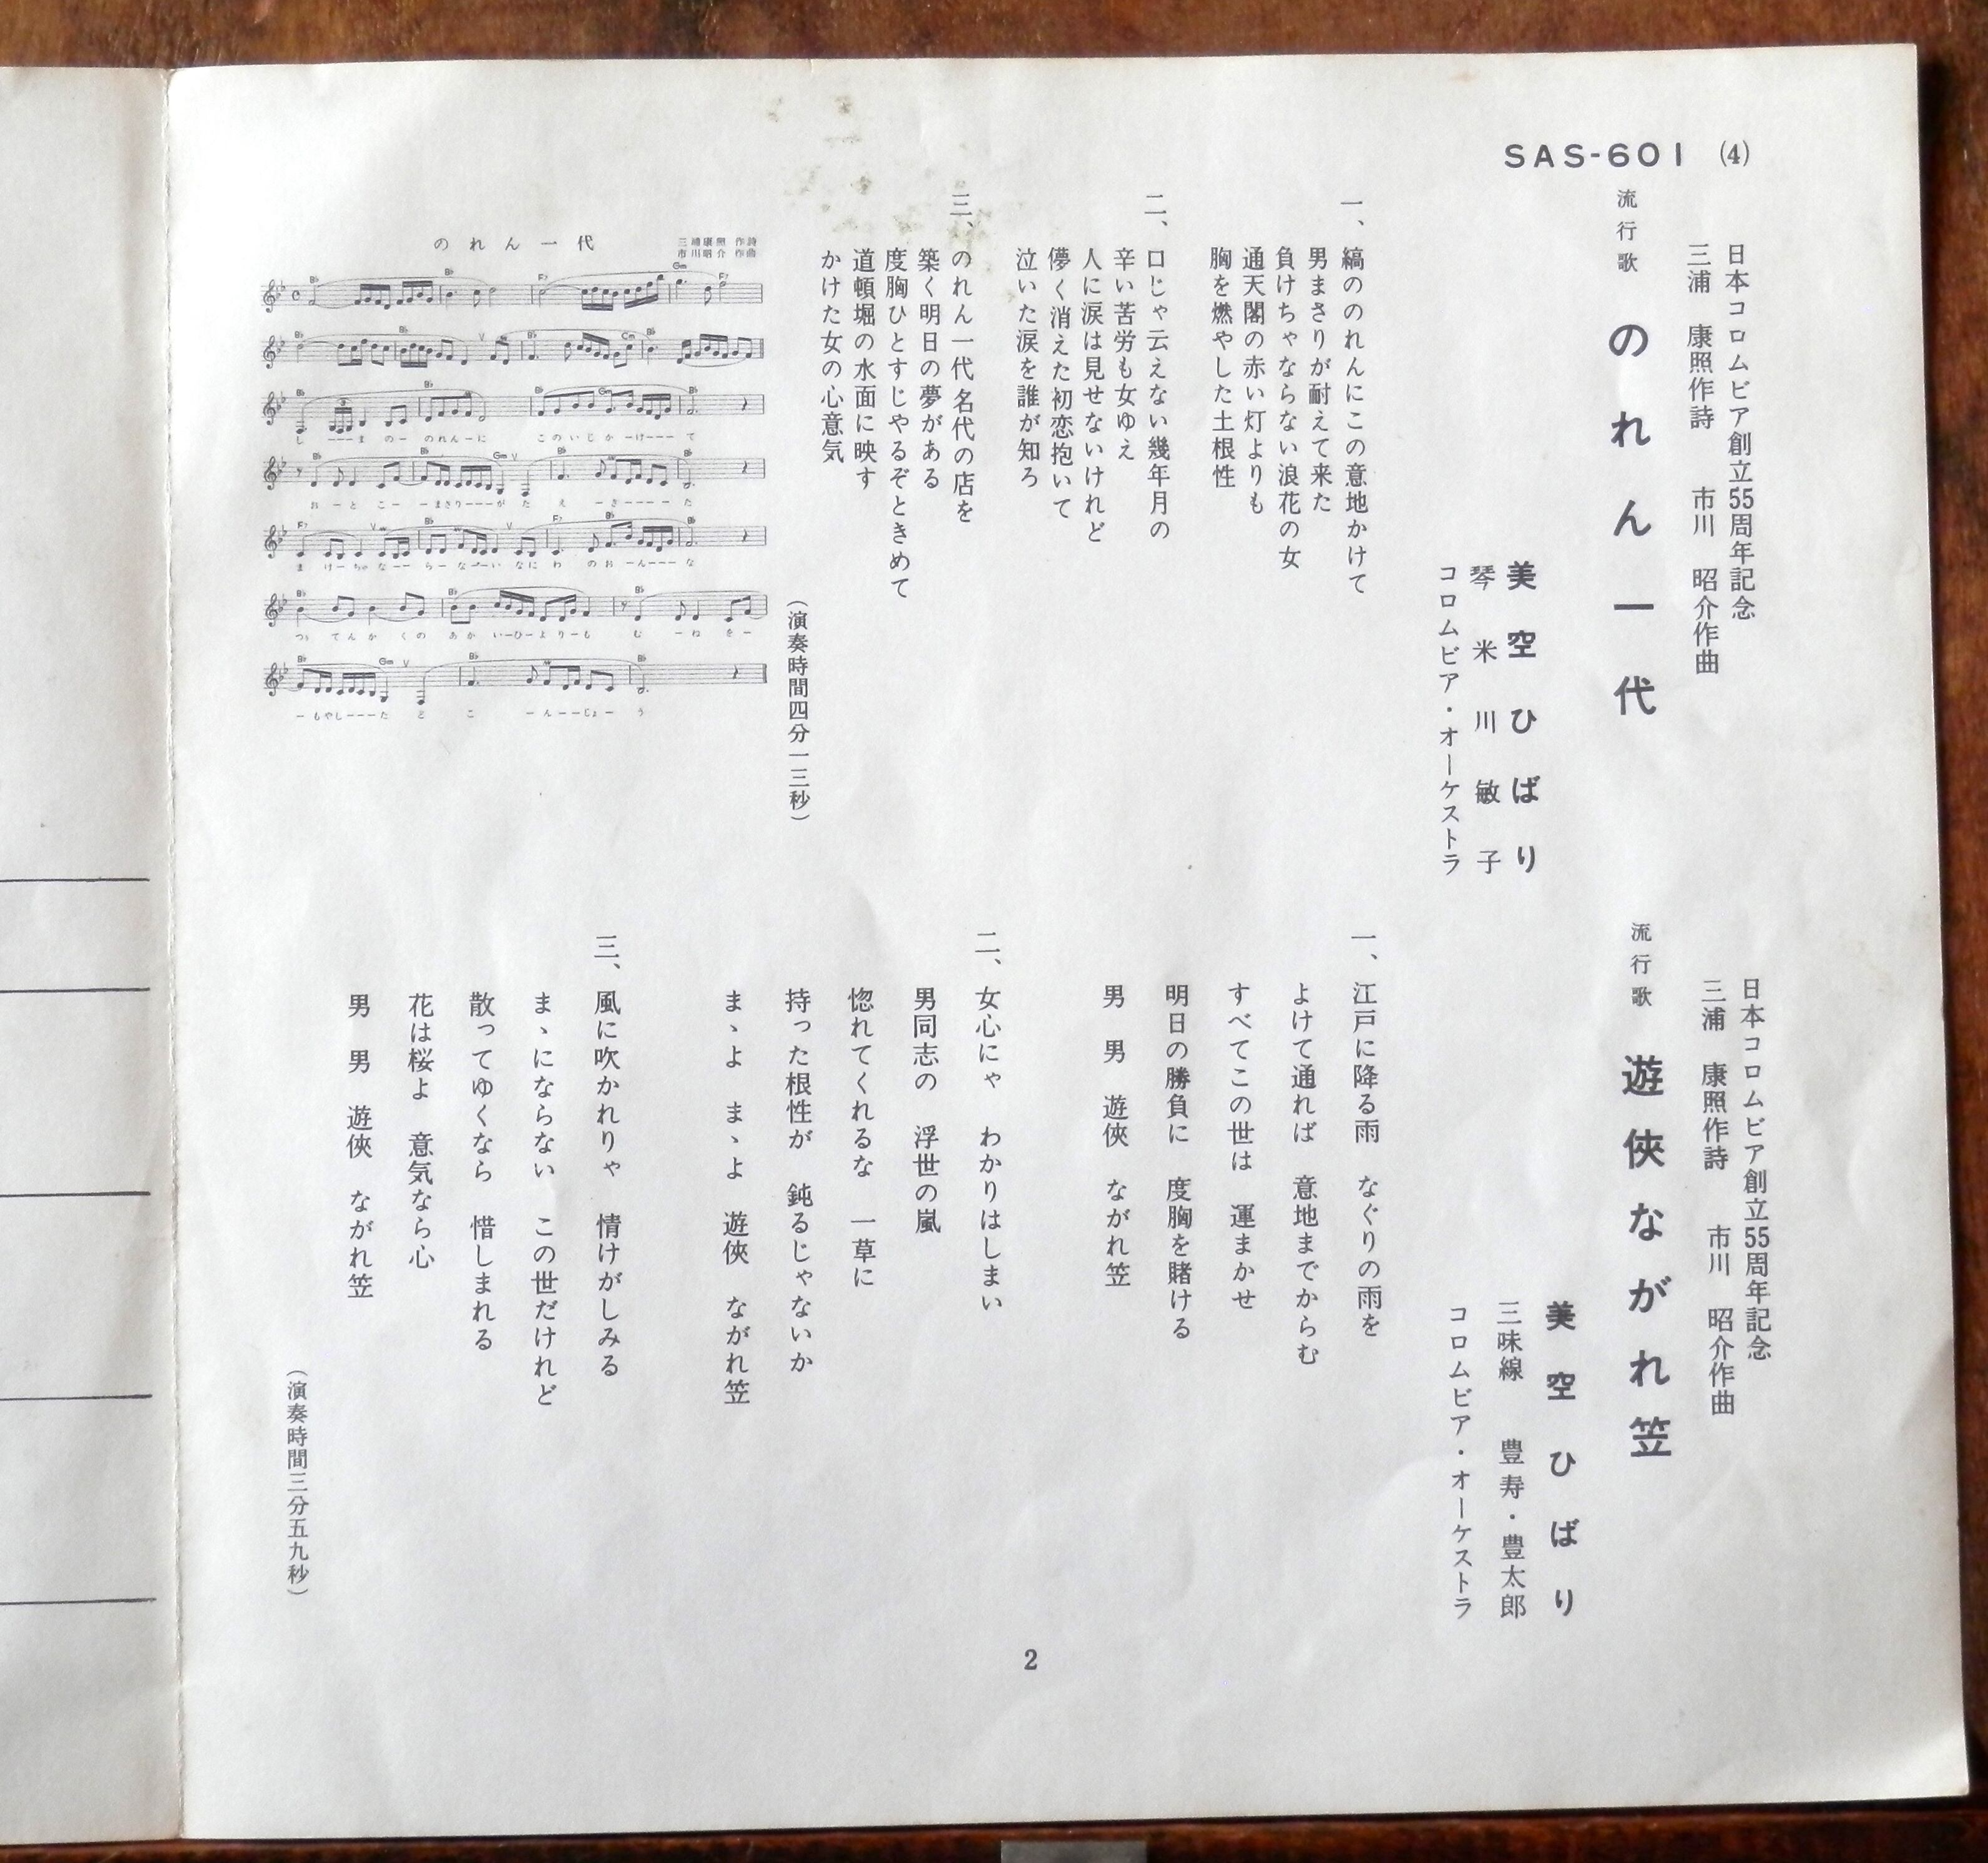 SAS-601 (4)
日本コロムビア創立55周年記念
三浦 康照作詩 市川 昭介作曲
流行歌 のれん一代
美空ひばり
琴 米川敏子
コロムビア・オーケストラ
一、縞ののれんにこの意地かけて
男まさりが耐えて来た
負けちゃならない浪花の女
通天閣の赤い灯よりも
胸を燃やした土根性
二、口じゃ云えない幾年月の
辛い苦労も女ゆえ
人に涙は見せないけれど
儚く消えた初恋抱いて
泣いた涙を誰が知ろ
三、のれん一代名代の店を
築く明日の夢がある
度胸ひとすじやるぞときめて
道頓堀の水面に映す
かけた女の心意気
(演奏時間四分一三秒)
のれん一代
三浦康照 作詩
市川昭介 作曲
日本コロムビア創立55周年記念
三浦 康照作詩 市川 昭介作曲
流行歌 遊侠ながれ笠
美空ひばり
三味線 豊寿・豊太郎
コロムビア・オーケストラ
一、江戸に降る雨 なぐりの雨を
よけて通れば 意地までからむ
すべてこの世は 運まかせ
明日の勝負に 度胸を賭ける
男 男 遊侠 ながれ笠
二、女心にゃ わかりはしまい
男同志の 浮世の嵐
惚れてくれるな 一草に
持った根性が 鈍るじゃないか
まゝよ まゝよ 遊侠 ながれ笠
三、風に吹かれりゃ 情けがしみる
まゝにならない この世だけれど
散ってゆくなら 惜しまれる
花は桜よ 意気なら心
男 男 遊侠 ながれ笠
(演奏時間三分五九秒)
2